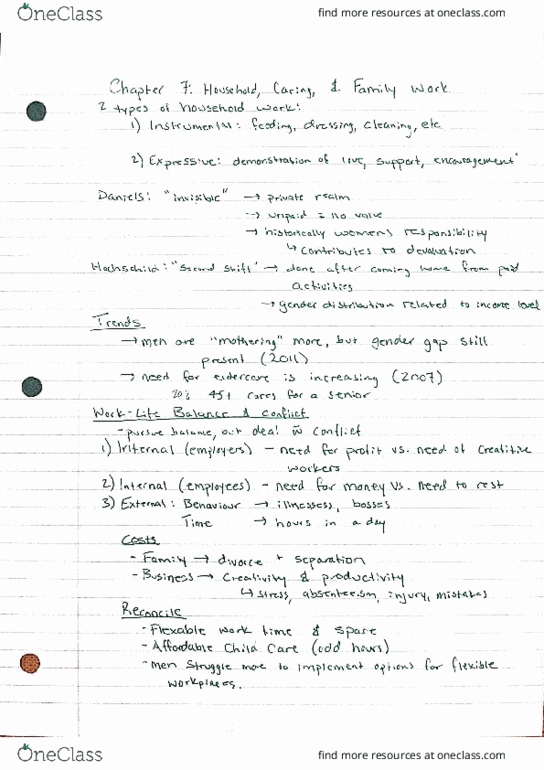 OneClass
find more resources at oneclass.com
Chapter 7: Household, Caring, & Family Work
2 types of household work:
1) Instrumental: feeding, dressing, cleaning, etc
2) Expressive: demonstration of love, support, encouragement
Daniels: "invisible" → private realm
→ unpaid = no value
→ historically womens responsibility
↳ contributes to devaluation
Hochschild: "second shift" → done after coming home from paid
activities
→ gender distribution related to income level
Trends
→ men are "mothering" more, but gender gap still
present (2011)
→ need for eldercare is increasing (2007)
20% 45+ cares for a senior
Work-Life Balance & Conflict
- pursue balance, but deal w conflict
1) Internal (employers) - need for profit vs. need of creative
workers
2) Internal (employees) - need for money vs. need to rest
3) External: Behaviour → illnesses, bosses
Time → hours in a day
Costs
- Family → divorce + separation
- Business → Creativity & productivity
↳ stress, absenteeism, injury, mistakes
Reconcile
- Flexable work time & space
- Affordable Child Care (odd hours)
- men struggle more to implement options for flexible
workplaces.
OneClass
find more resources at oneclass.com